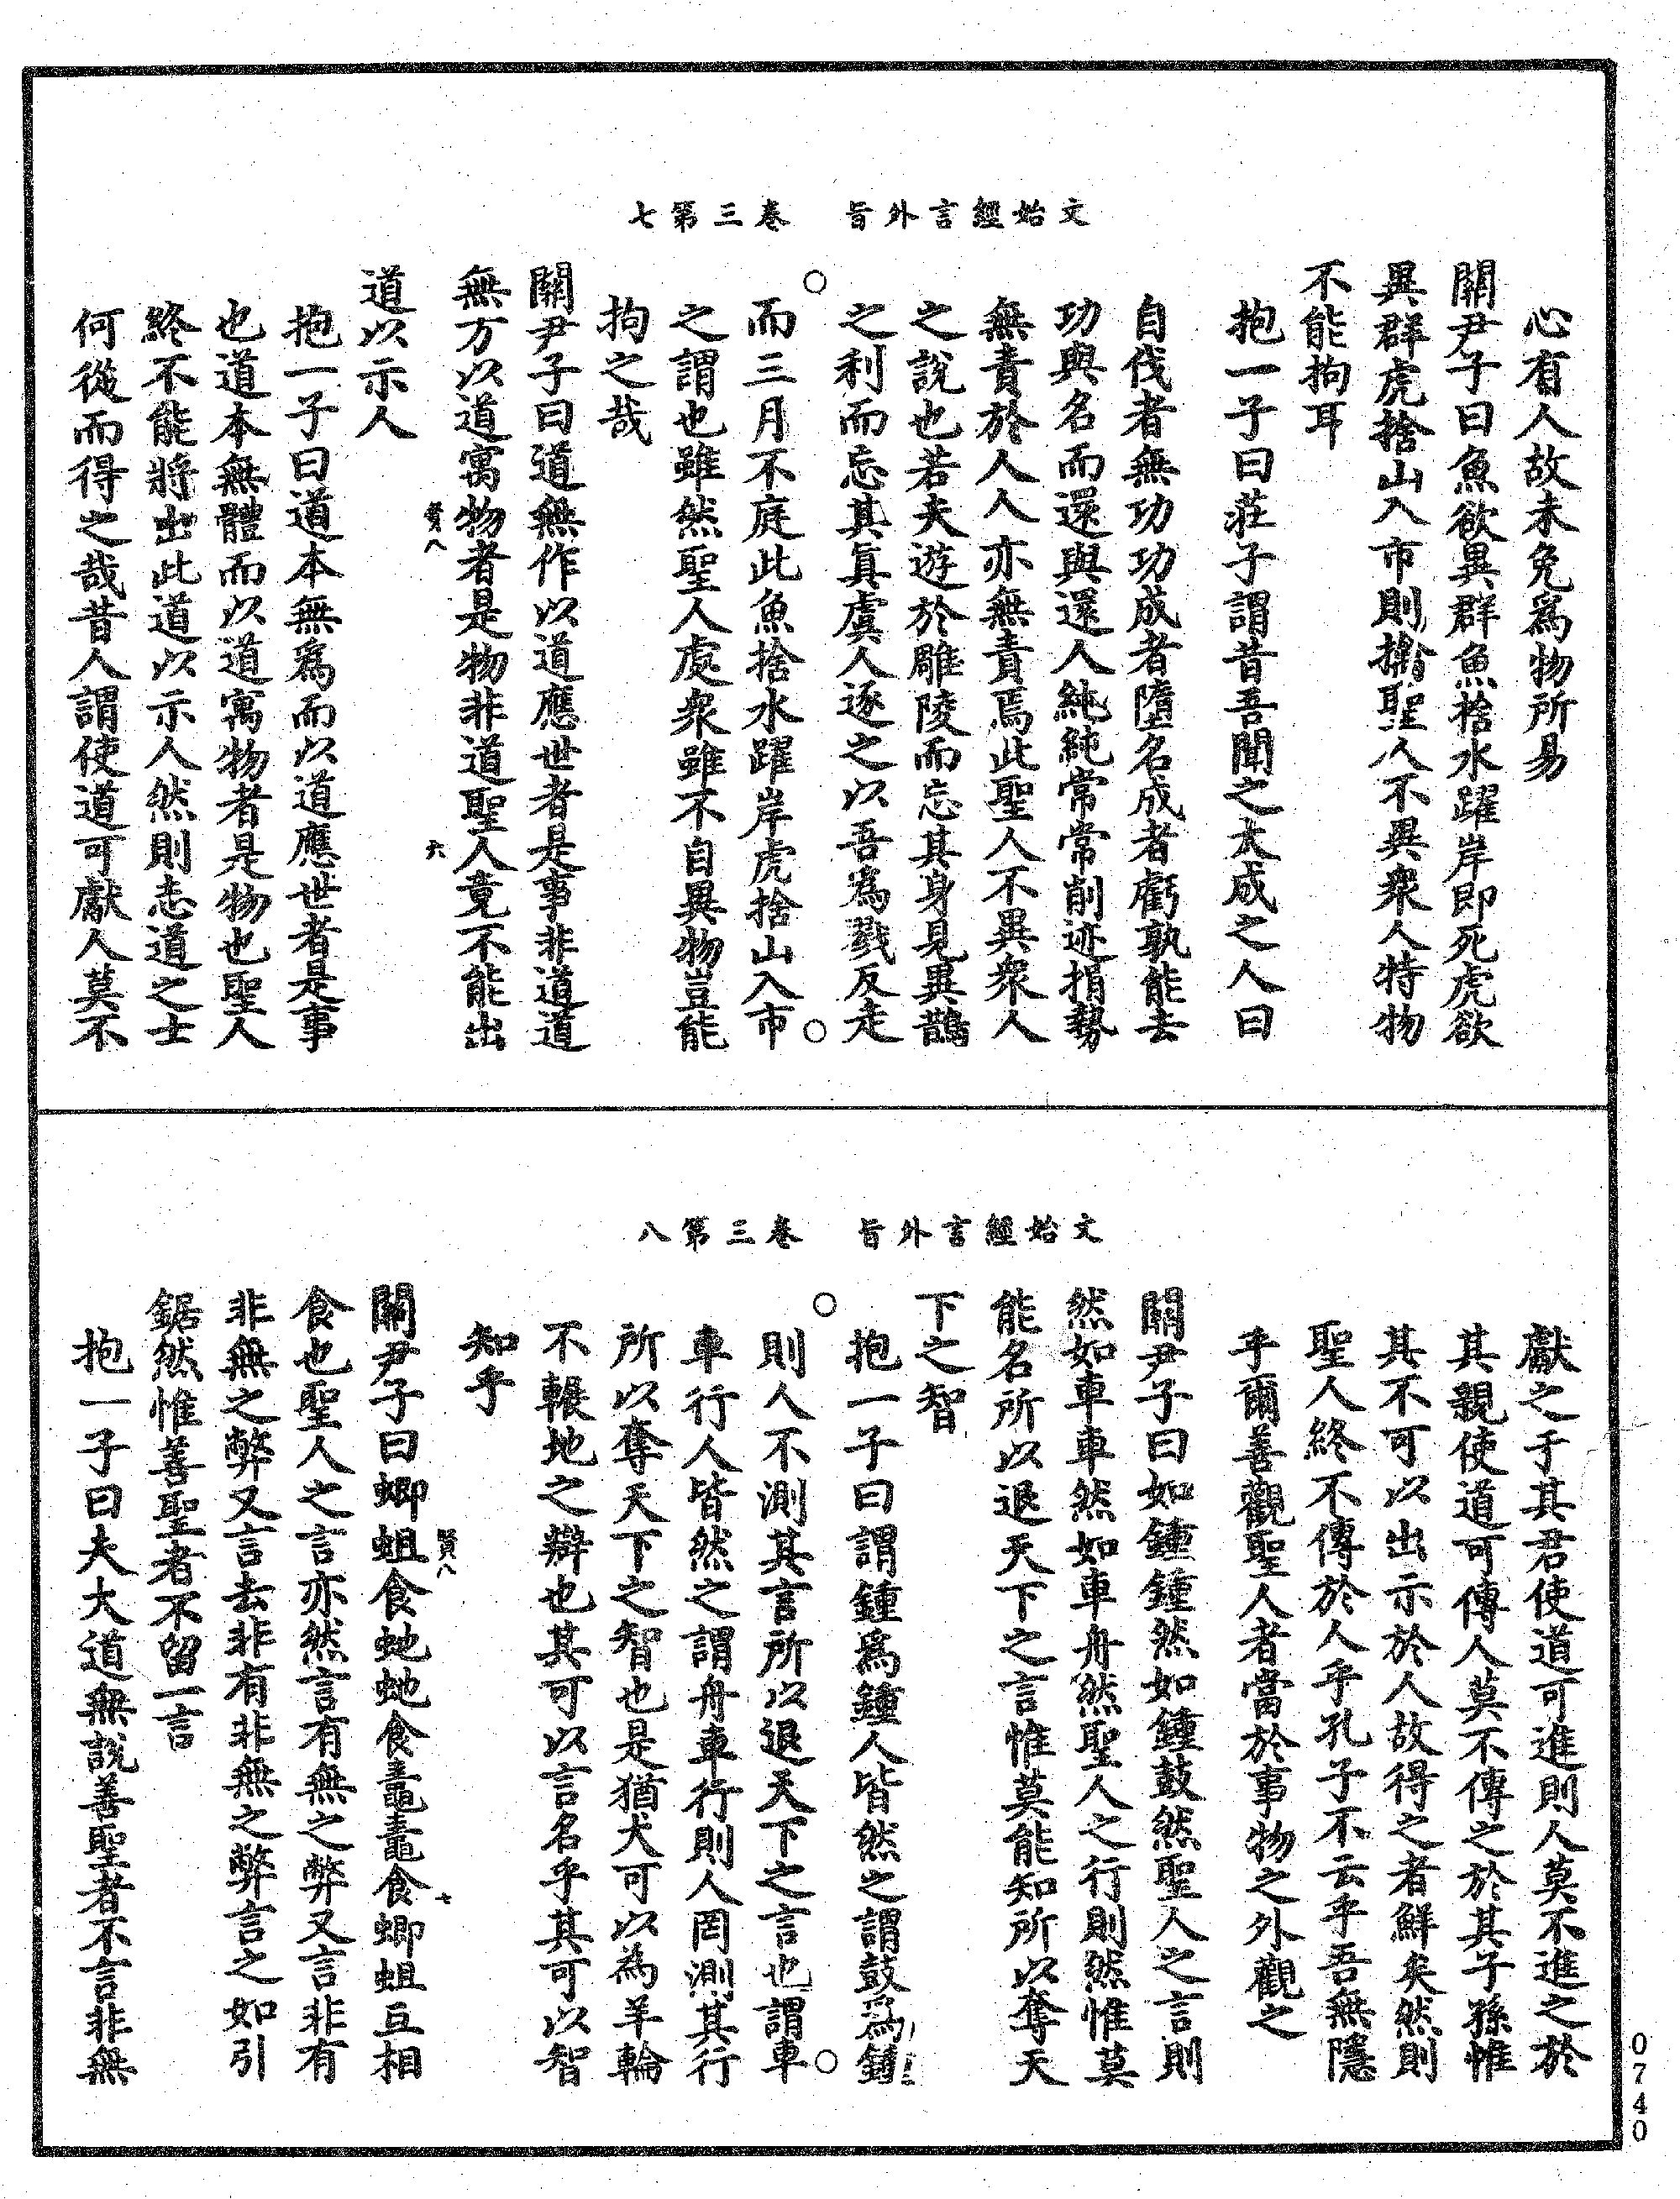 文始經言外旨　卷三第七
心有人故未免爲物所易
關尹子曰魚欲異群魚捨水躍岸即死虎欲
異群虎捨山入市則擒聖人不異衆人特物
不能拘耳
抱一子曰莊子謂昔吾聞之大成之人曰
自伐者無功功成者墮名成者虧孰能去
功與名而還與還人純純常常削迹捐勢
無責於人人亦無責焉此聖人不異衆人
之說也若夫遊於雕陵而忘其身見異鵲
之利而忘其眞虞人逐之以吾爲戮反走
而三月不庭此魚捨水躍岸虎捨山入市
之謂也雖然聖人處衆雖不自異物豈能
拘之哉
關尹子曰道無作以道應世者是事非道道
無方以道寓物者是物非道聖人竟不能出
賢八　六
道以示人
抱一子曰道本無爲而以道應世者是事
也道本無體而以道寓物者是物也聖人
終不能將出此道以示人然則志道之士
何從而得之哉昔人謂使道可獻人莫不
文始經言外旨　卷三第八
獻之于其君使道可進則人莫不進之於
其親使道可傳人莫不傳之於其子孫惟
其不可以出示於人故得之者鮮矣然則
聖人終不傳於人乎孔子不云乎吾無隱
乎爾善觀聖人者當於事物之外觀之
關尹子曰如鍾鍾然如鍾鼓然聖人之言則
然如車車然如車舟然聖人之行則然惟莫
能名所以退天下之言惟莫能知所以奪天
下之智
抱一子曰謂鍾爲鍾人皆然之謂鼓爲鍾
則人不測其言所以退天下之言也謂車
車行人皆然之謂舟車行則人罔測其行
所以奪天下之智也是猶犬可以為羊輪
不輾地之辯也其可以言名乎其可以智
知乎
賢八　七
關尹子曰蝍蛆食虵虵食鼃鼃食蝍蛆互相
食也聖人之言亦然言有無之弊又言非有
非無之弊又言去非有非無之弊言之如引
鋸然惟善聖者不留一言
抱一子曰夫大道無說善聖者不言非無
0740